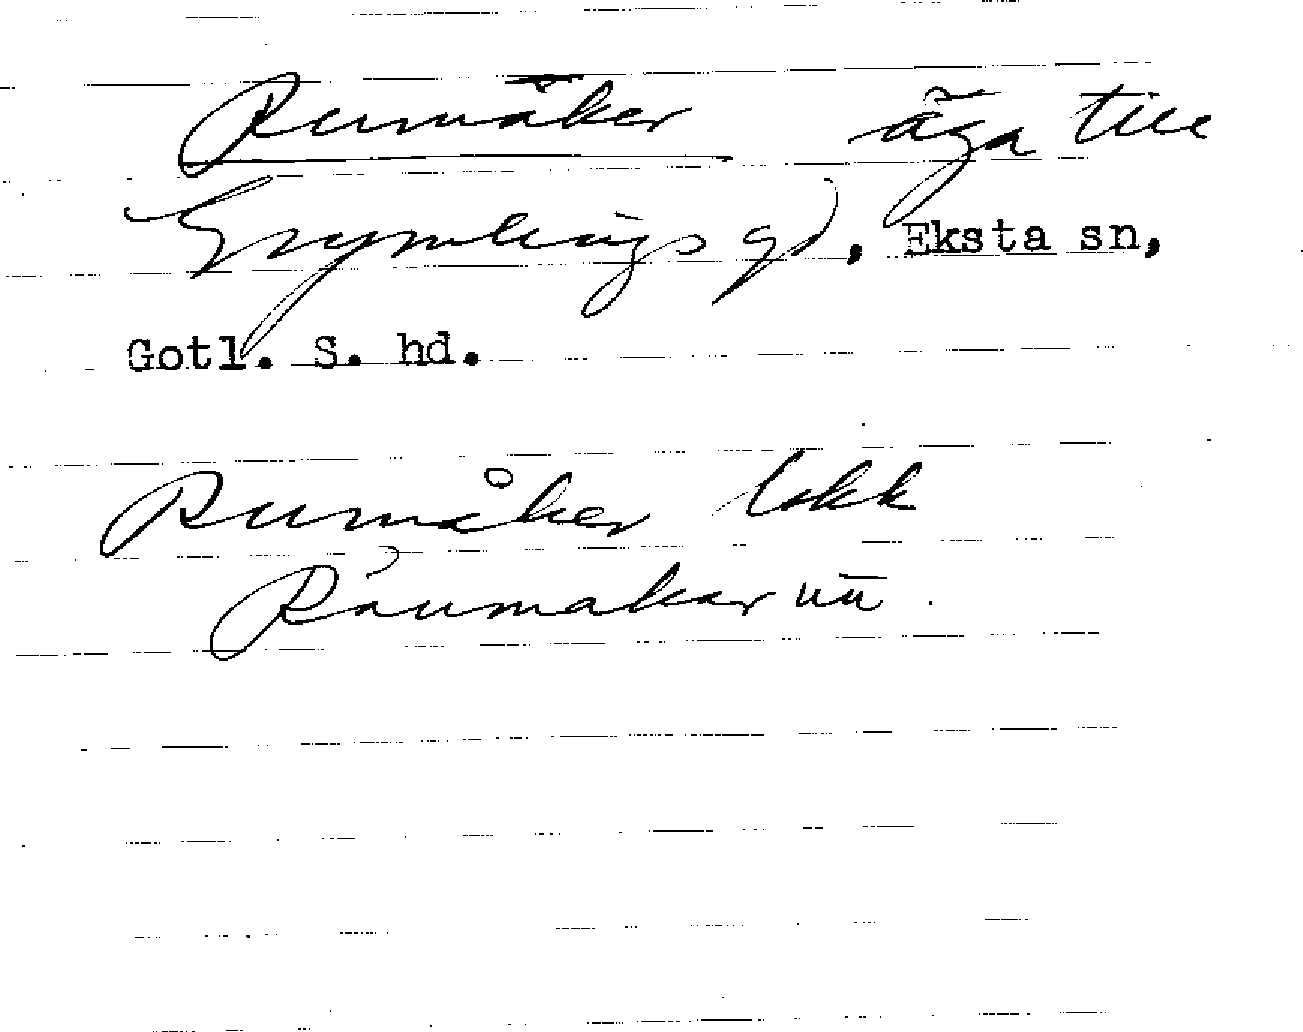 Rumåker äga till
Grymlings gd, Eksta sn,
Gotl. S. hd.
Rumåker
Råumakar